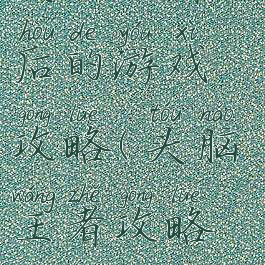 hòu de yóu xì
后的游戏
gōng lüè tóu nǎo
攻略(头脑
wáng zhě gōng lüè
王者攻略